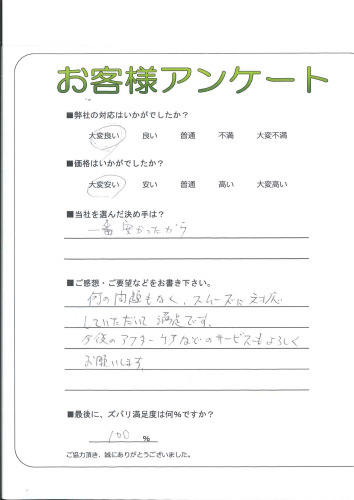 お客様アンケート
■弊社の対応はいかがでしたか？
大変良い 良い 普通 不満 大変不満
■価格はいかがでしたか？
大変安い 安い 普通 高い 大変高い
■当社を選んだ決め手は？
一番安かったから
■ご感想・ご要望などをお書き下さい。
何の問題もなく、スムーズに対応
していただいて満足です。
今後のアフターケアなどのサービスもよろしく
お願いします。
■最後に、ズバリ満足度は何％ですか？
100 ％
ご協力頂き、誠にありがとうございました。